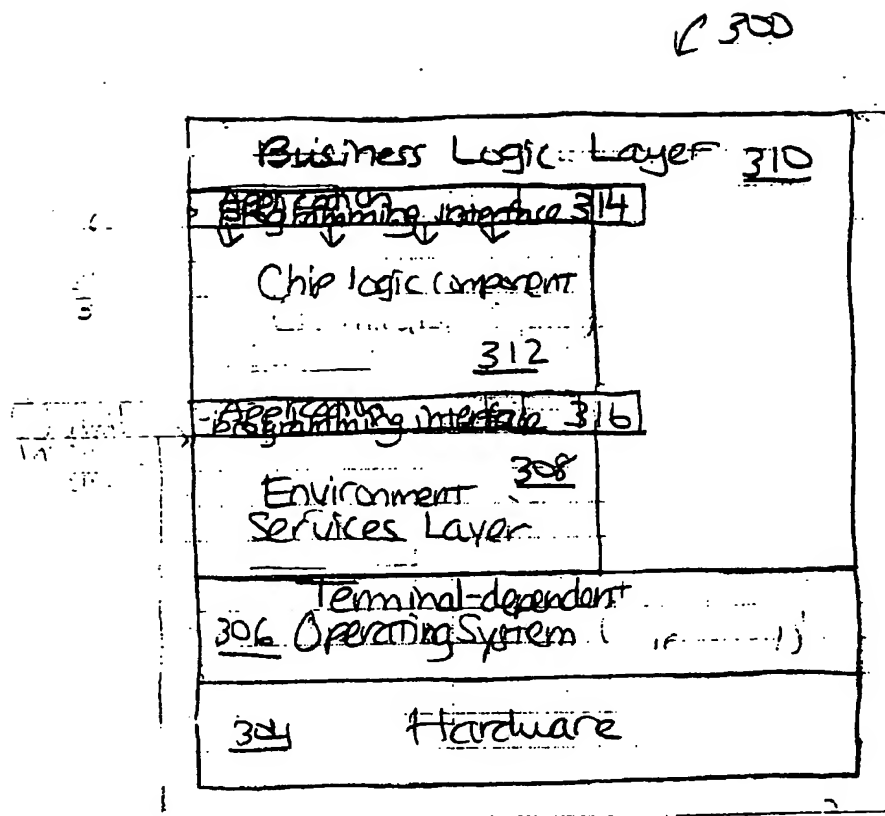 300
Business Logic Layer 310
Application
Programming interface 314
Chip logic component
312
Application
programming interface 316
308
Environment
Services Layer
Terminal-dependent
306 Operating System (
304 Hardware